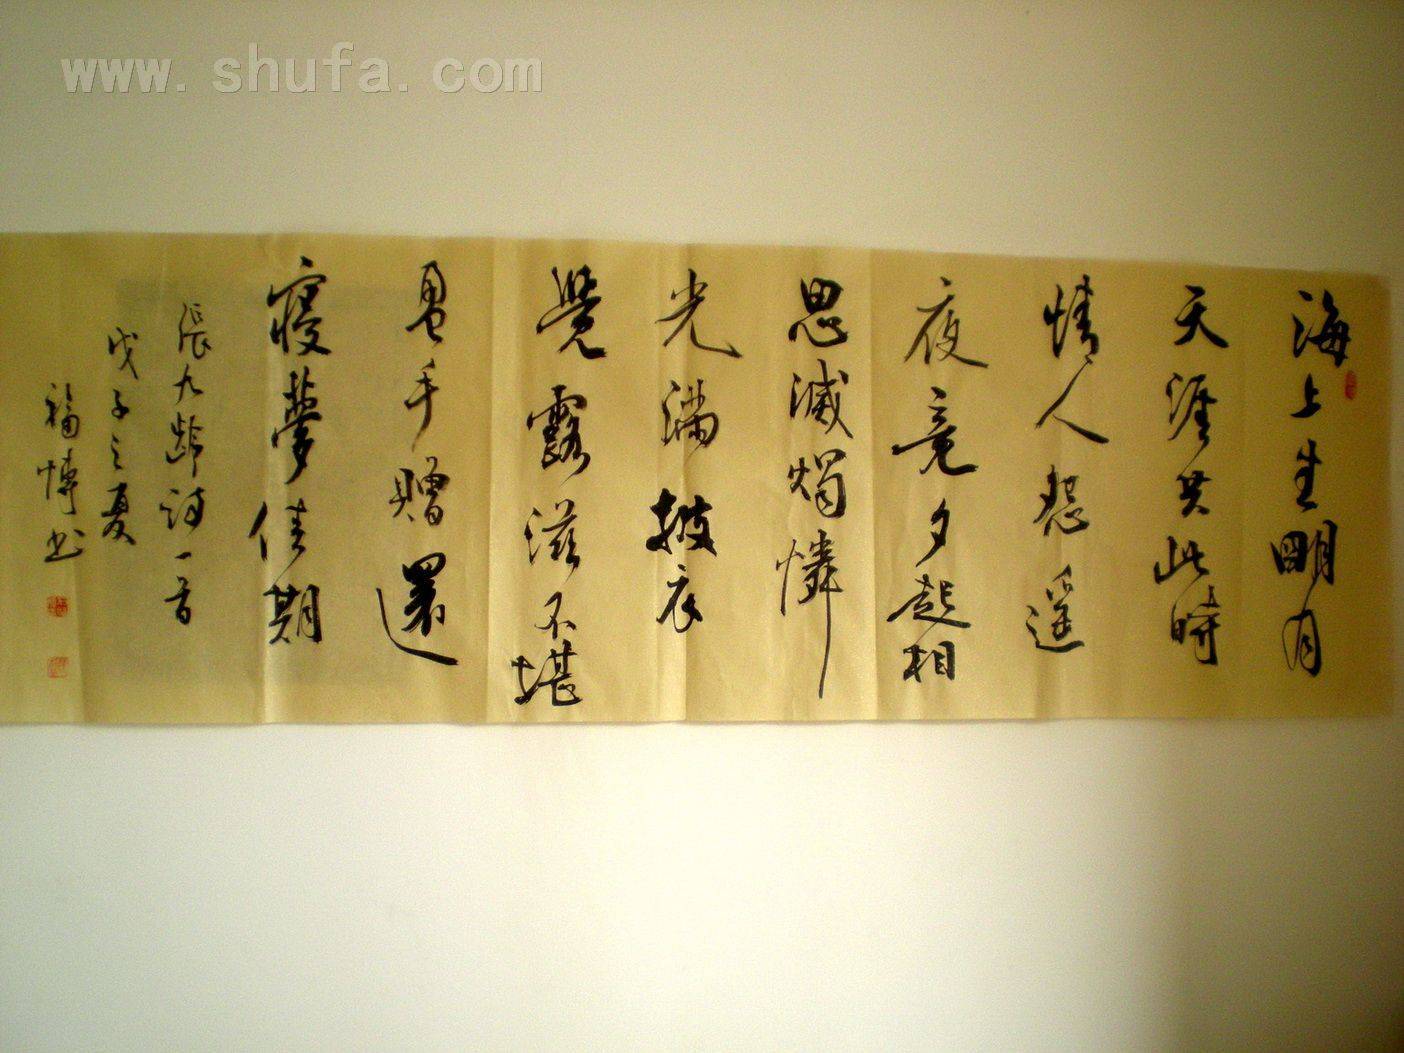 www.shufa.com
海上生明月
天涯共此時
情人怨遥
夜竟夕起相
思滅燭憐
光满披衣
覺露滋不堪
盈手贈還
寢夢佳期
張九齡詩一首
戊子之夏
福博书